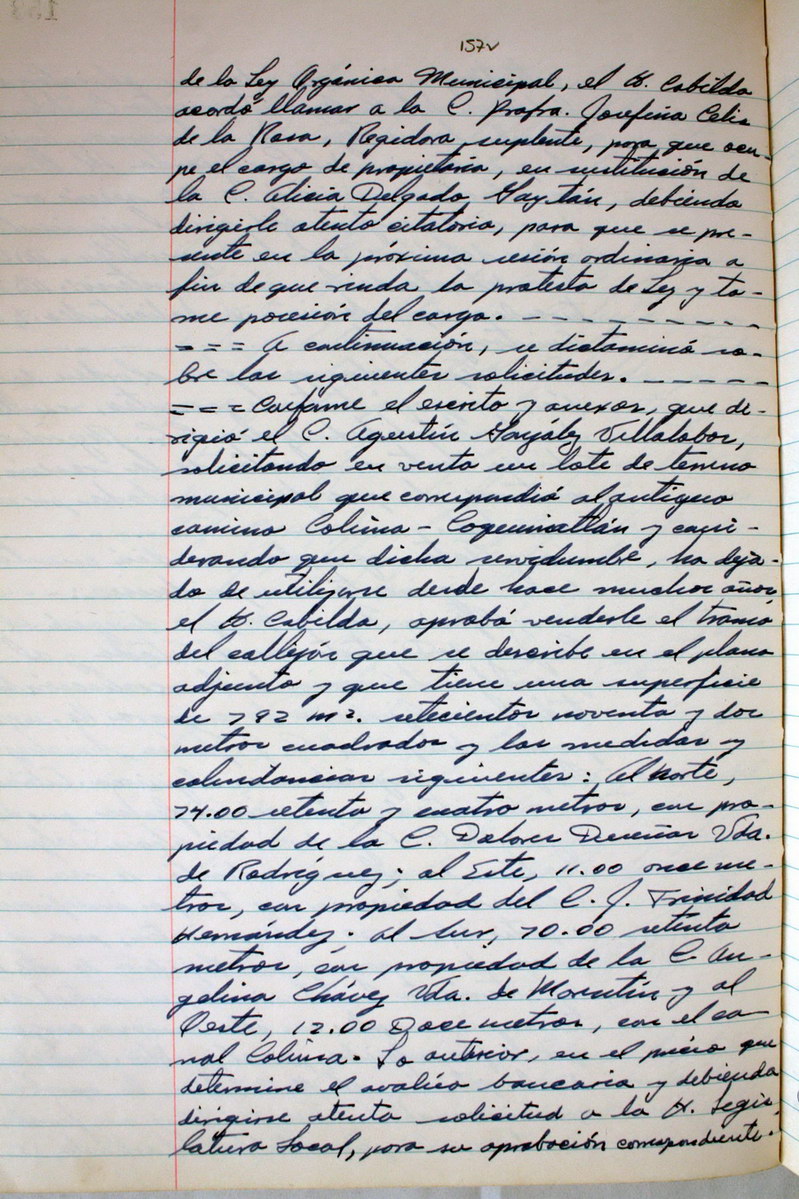 157v
de la Ley Orgánica Municipal, el H. Cabildo
acordó llamar a la C. Profra. Josefina Celis
de la Rosa, Regidora suplente, para que ocu-
pe el cargo de propietaria, en sustitución de
la C. Alicia Delgado Gaytán, debiendo
dirigirle atento citatorio, para que se pre-
sente en la próxima sesión ordinaria a
fin de que rinda la protesta de Ley y to-
me posesión del cargo. - - - - - - - - -
= = = A continuación, se dictaminó so-
bre las siguientes solicitudes. - - - - -
= = = Conforme el escrito y anexos, que di-
rigió el C. Agustín González Villalobos,
solicitando en venta un lote de terreno
municipal que correspondió al antiguo
camino Colima - Coquimatlán y consi-
derando que dicha servidumbre, ha deja-
do de utilizarse desde hace muchos años,
el H. Cabildo, aprobó venderle el tramo
del callejón que se describe en el plano
adjunto y que tiene una superficie
de 792 m2. setecientos noventa y dos
metros cuadrados y las medidas y
colindancias siguientes: Al Norte,
74.00 setenta y cuatro metros, con pro-
piedad de la C. Dolores Dueñas Vda.
de Rodríguez; al Este, 11.00 once me-
tros, con propiedad del C. J. Trinidad
Hernández. al Sur, 70.00 setenta
metros, con propiedad de la C. An-
gelina Chávez Vda. de Morentín y al
Oeste, 12.00 Doce metros, con el ca-
nal Colima. Lo anterior, en el precio que
determine el avalúo bancario y debiendo
dirigirse atenta solicitud a la H. Legis-
latura Local, para su aprobación correspondiente.